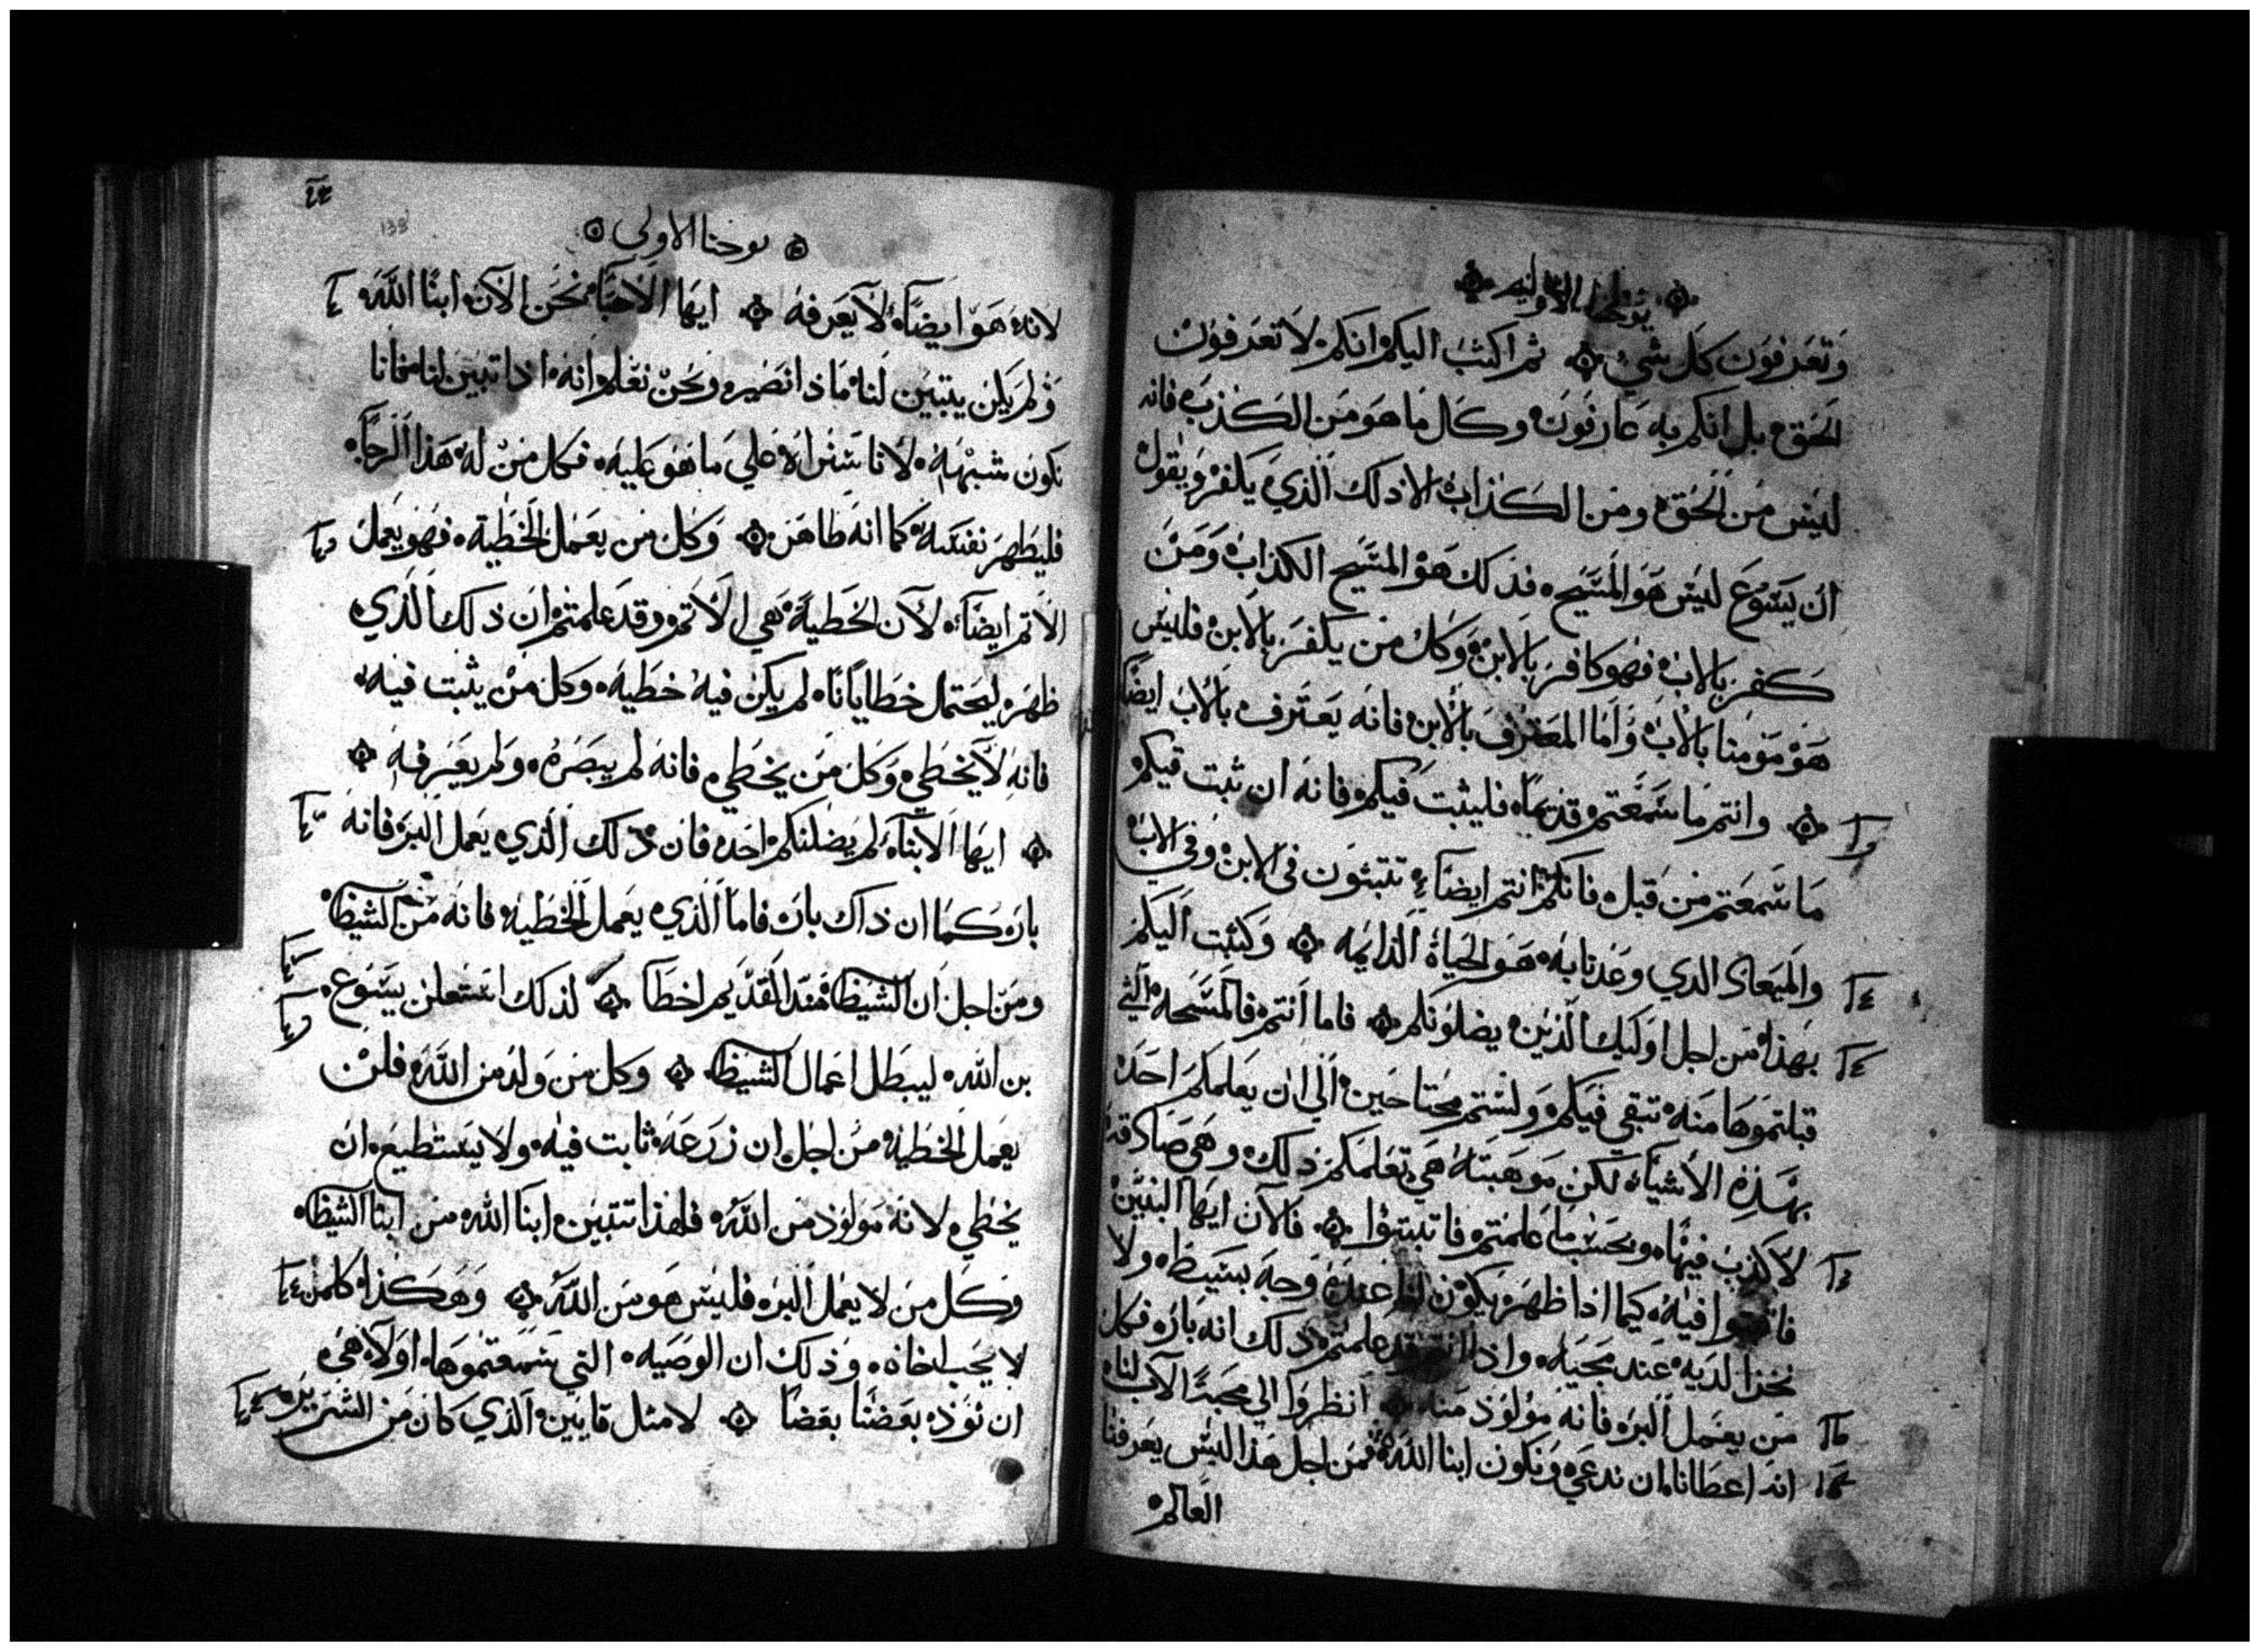 يوحنا الاوليه
وَتعَرفوَن كَل شيٍ ثم اكتبَ اليكم انكم لا تعَرفوُن
الحَق بل انكم به عَارفوَن وكَل مَا هوَ مَن الكَذبَ فانه
ليَس مَن الحَق ومَن الكَذاب الا ذلك الذي يَكفرُ ويقول
ان يَسَوع ليَس هَو المسَيح فذلك هَو المسَيح الكذاب وَمَن
كَفر بالاب فهو كافر بالابن وَكل مَن يَكفرَ بالابن فليس
هَو مَومنا بالاب وَاما المعَترف بالابن فانه يَعتَرف بالاب ايضًا
وانتم مَا سَمعَتم قديمًا فليثبت فيكم فانه ان ثبت فيكم
مَا سَمعَتم مَن قبل فانكم انتم ايضًا تثبتون في الابن وفي الاب
والميعاد الدي وعَدنا به هَو الحَياة الدايمه وَكتبت اليَكم
بهذا مَن اجل اوَليك الذين يضلونكم فاما انتم فالمسَحه التي
قبلتموهَا مَنه تبقي فيَكم وَلستم محتاجَين الي ان يعَلمكم احَد
بهَذه الاشيآ لكن مَوهَبته هَي تعَلمكم ذلك وهَي صَادقه
لا كذبَ فيهَا وبحَسَب ما عَلمتم فاثبتوا فالان ايهَا البنين
فاثبتوا فيه كيما اذا ظهَر يَكوَن لنا عنده وَجه بسَيط ولا
نخزا لديه عَند مجَيه واذ انتم قد عَلمتم ذلك انه بار فكل
مَن يعَمل البر فانه مَولوَد مَنه انظروَا الي محَبة الاب لنا
انه اعطانا ان ندعَي وَنكون ابنا الله فمَن اجل هَذا ليس يعَرفنا
العَالم
يوحنا الاولي
لانه هَو ايضًا لا يعَرفه ايهَا الاحَبا نحَن الان ابنا الله
وَلم يَكن يتبيَن لنا مَا ذا نصَير ونحَن نعَلم انه اذا تبيَن لنا فانا
نكون شبهَه لانا سَنراه عَلي مَا هَو عَليه فكل مَن له هَذا الرجَا
فليَطهرَ نفسَه كما انه طاهَر وَكل مَن يعَمل الخَطيه فهَو يَعمل
الاثم ايضًا لان الخَطيه هَي الاثم وقد عَلمتم ان ذلك الذي
ظهَر ليحَتمل خطايانا لم يَكن فيه خَطيه وَكل مَن يثبت فيه
فانه لا يخَطي وَكل مَن يخطي فانه لم يبصَره وَلم يعَرفه
ايهَا الابنآ لم يضلنكم احَد فان ذلك الذي يعَمل البر فانه
بار كَما ان ذاك بار فاما الذي يعَمل الخَطيه فانه مَن الشيطا
ومَن اجل ان الشيطا منذ القديم اخطا لذلك استعَلن يسَوع
بن الله ليبطل اعَمال الشيطا وَكل مَن ولد من الله فلن
يعَمل الخَطيه مَن اجل ان زرعَه ثابت فيه ولا يَستطيع ان
يخطي لانه مَولود مَن الله فلهذا تتبيَن ابنا الله مَن ابنا الشيطا
وَكل مَن لا يعمل البر فليس هَو مَن الله وَهَكَذا كلمَن
لا يحَب اخاه وَذلك ان الوصَيه التي سَمعتموهَا اولا هَي
ان نوَد بعَضنا بعَضا لا مثل قايين الذي كان مَن الشرير